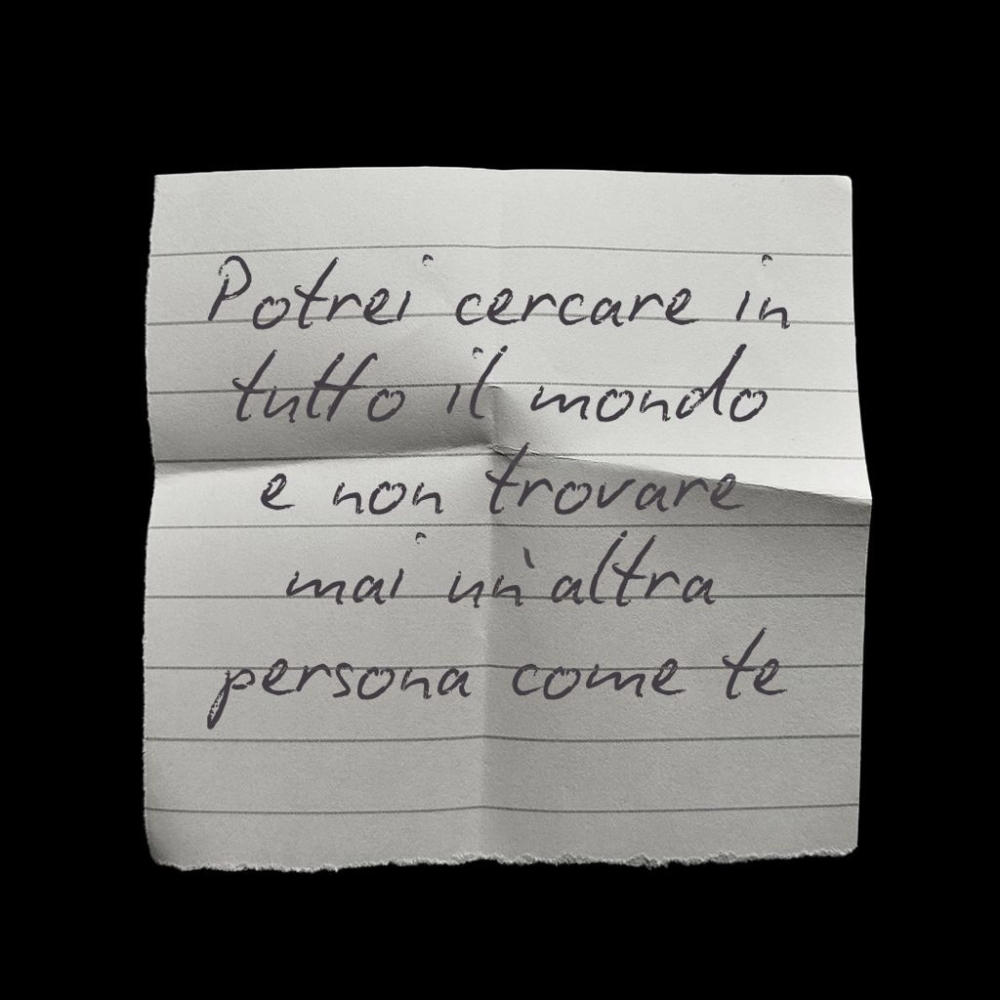 Potrei cercare in
tutto il mondo
e non trovare
mai un'altra
persona come te